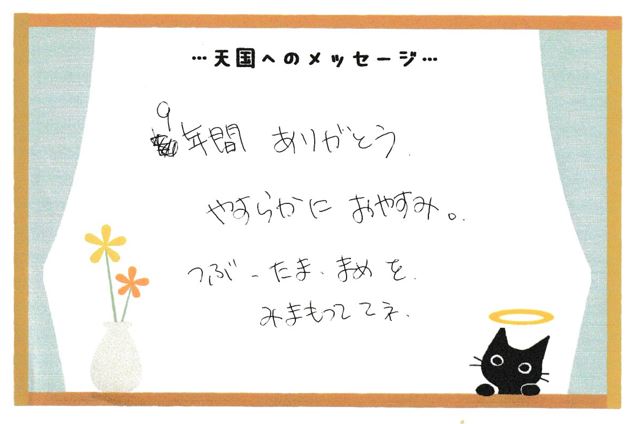 …天国へのメッセージ…
9年間 ありがとう.
やすらかに おやすみ。
つぶ-たま、まめを.
みまもっててネ.